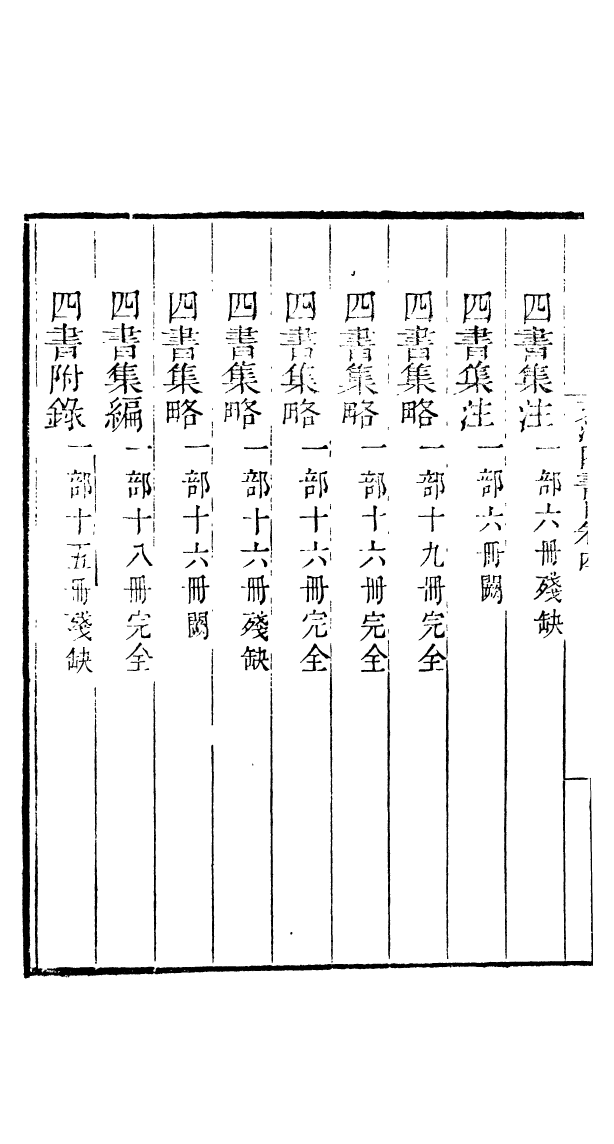 四書集注一部六冊殘缺
四書集注一部六冊闕
四書集略一部十九冊完全
四書集略一部十六冊完全
四書集略一部十六冊完全
四書集略一部十六冊殘缺
四書集略一部十六冊闕
四書集編一部十八冊完全
四書附錄一部十五冊殘缺